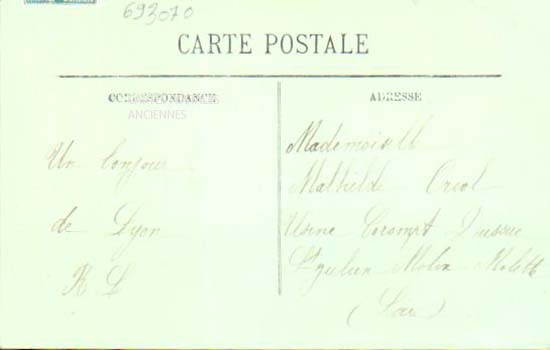 693070
CARTE POSTALE
CORRESPONDANCE
ANCIENNES
ADRESSE
Un bonjour
de Lyon
Mademoiselle
Mathilde Oriol
Usine Corompt
St Julien Molin Molette
(Loire)